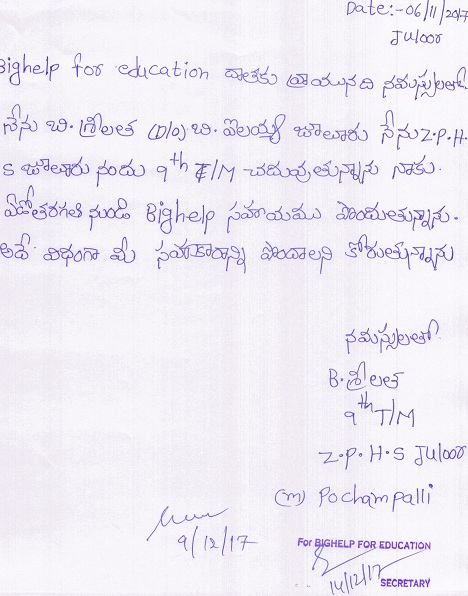 Date:-06/11/2017
Juloor
Bighelp for education దాతకు వ్రాయునది నమస్సులతో.
నేను బి. శ్రీలత (D/o) బి. ఐలయ్య జూలూరు నేను Z.P.H.
S జూలూరు నందు 9th T/M చదువుతున్నాను నాకు.
ఏడోతరగతి నుండి Bighelp సహాయము పొందుతున్నాను.
అదే విధంగా మీ సహకారాన్ని పొందాలని కోరుతున్నాను
నమస్సులతో.
B.శ్రీలత
9th T/M
Z.P.H.S Juloor
(m) Pochampalli
9/12/17
For BIGHELP FOR EDUCATION
14/12/17
SECRETARY